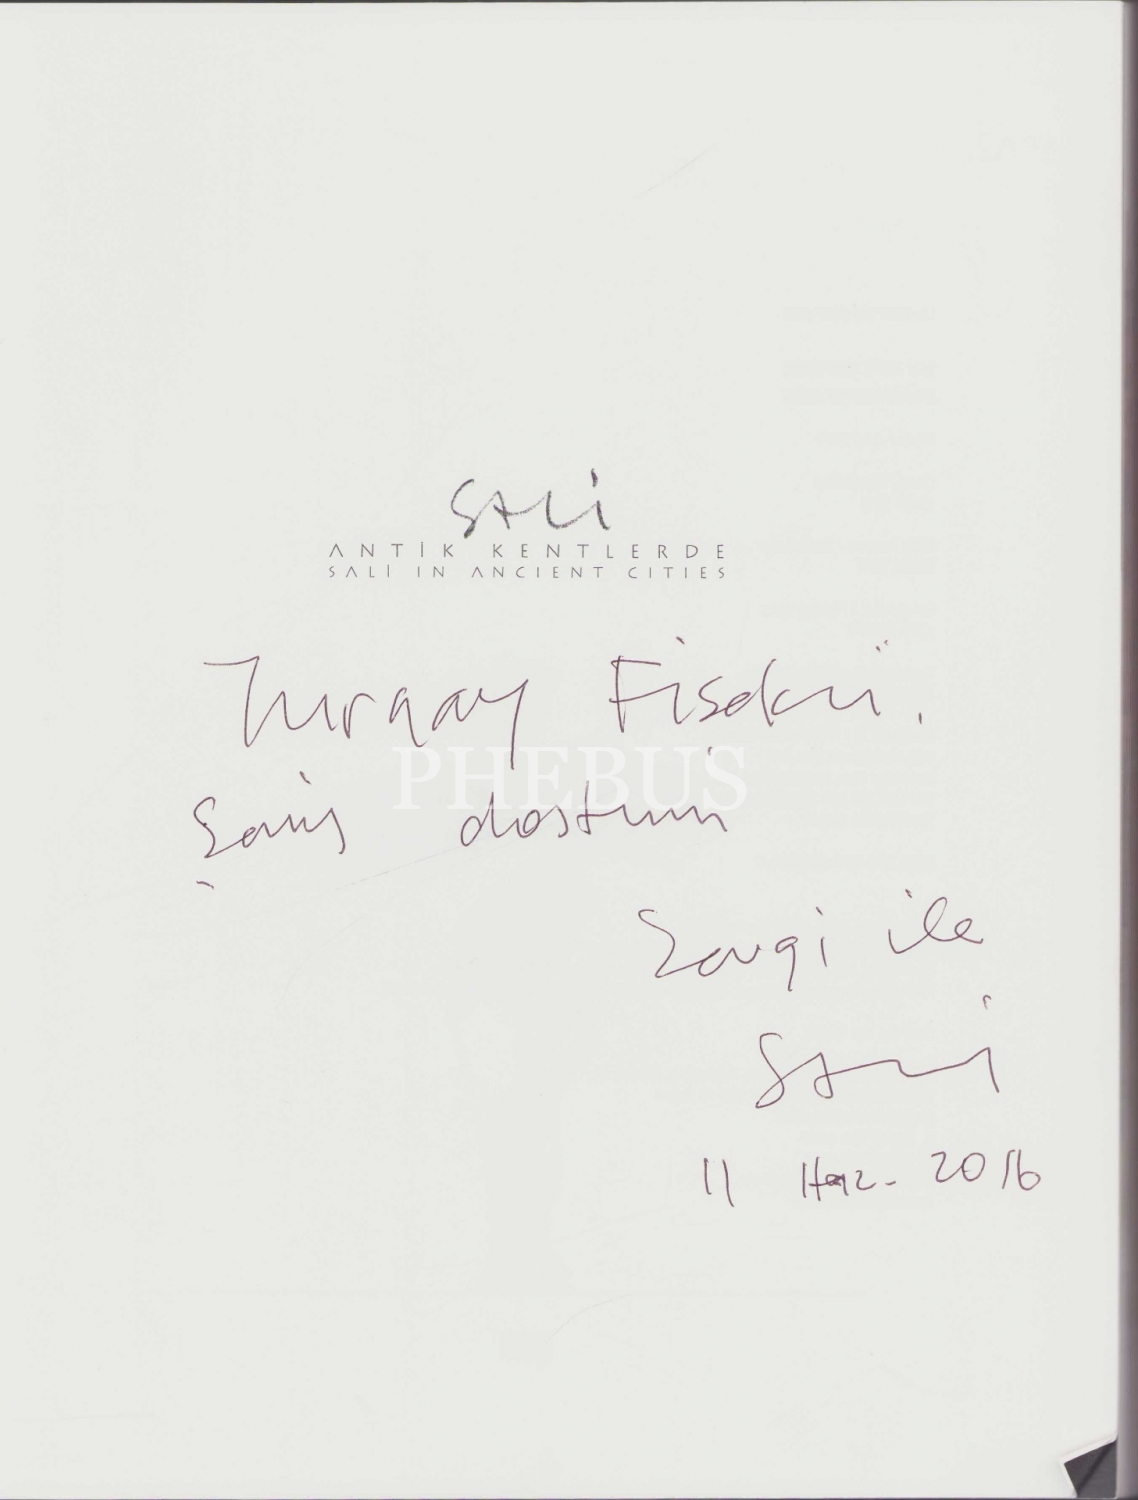 SALİ
ANTİK KENTLERDE
SALİ IN ANCIENT CITIES
Turgay Fişekçi.
PHEBUS
Şair dostum
Sevgi ile
Sali
11 Haz. 2016